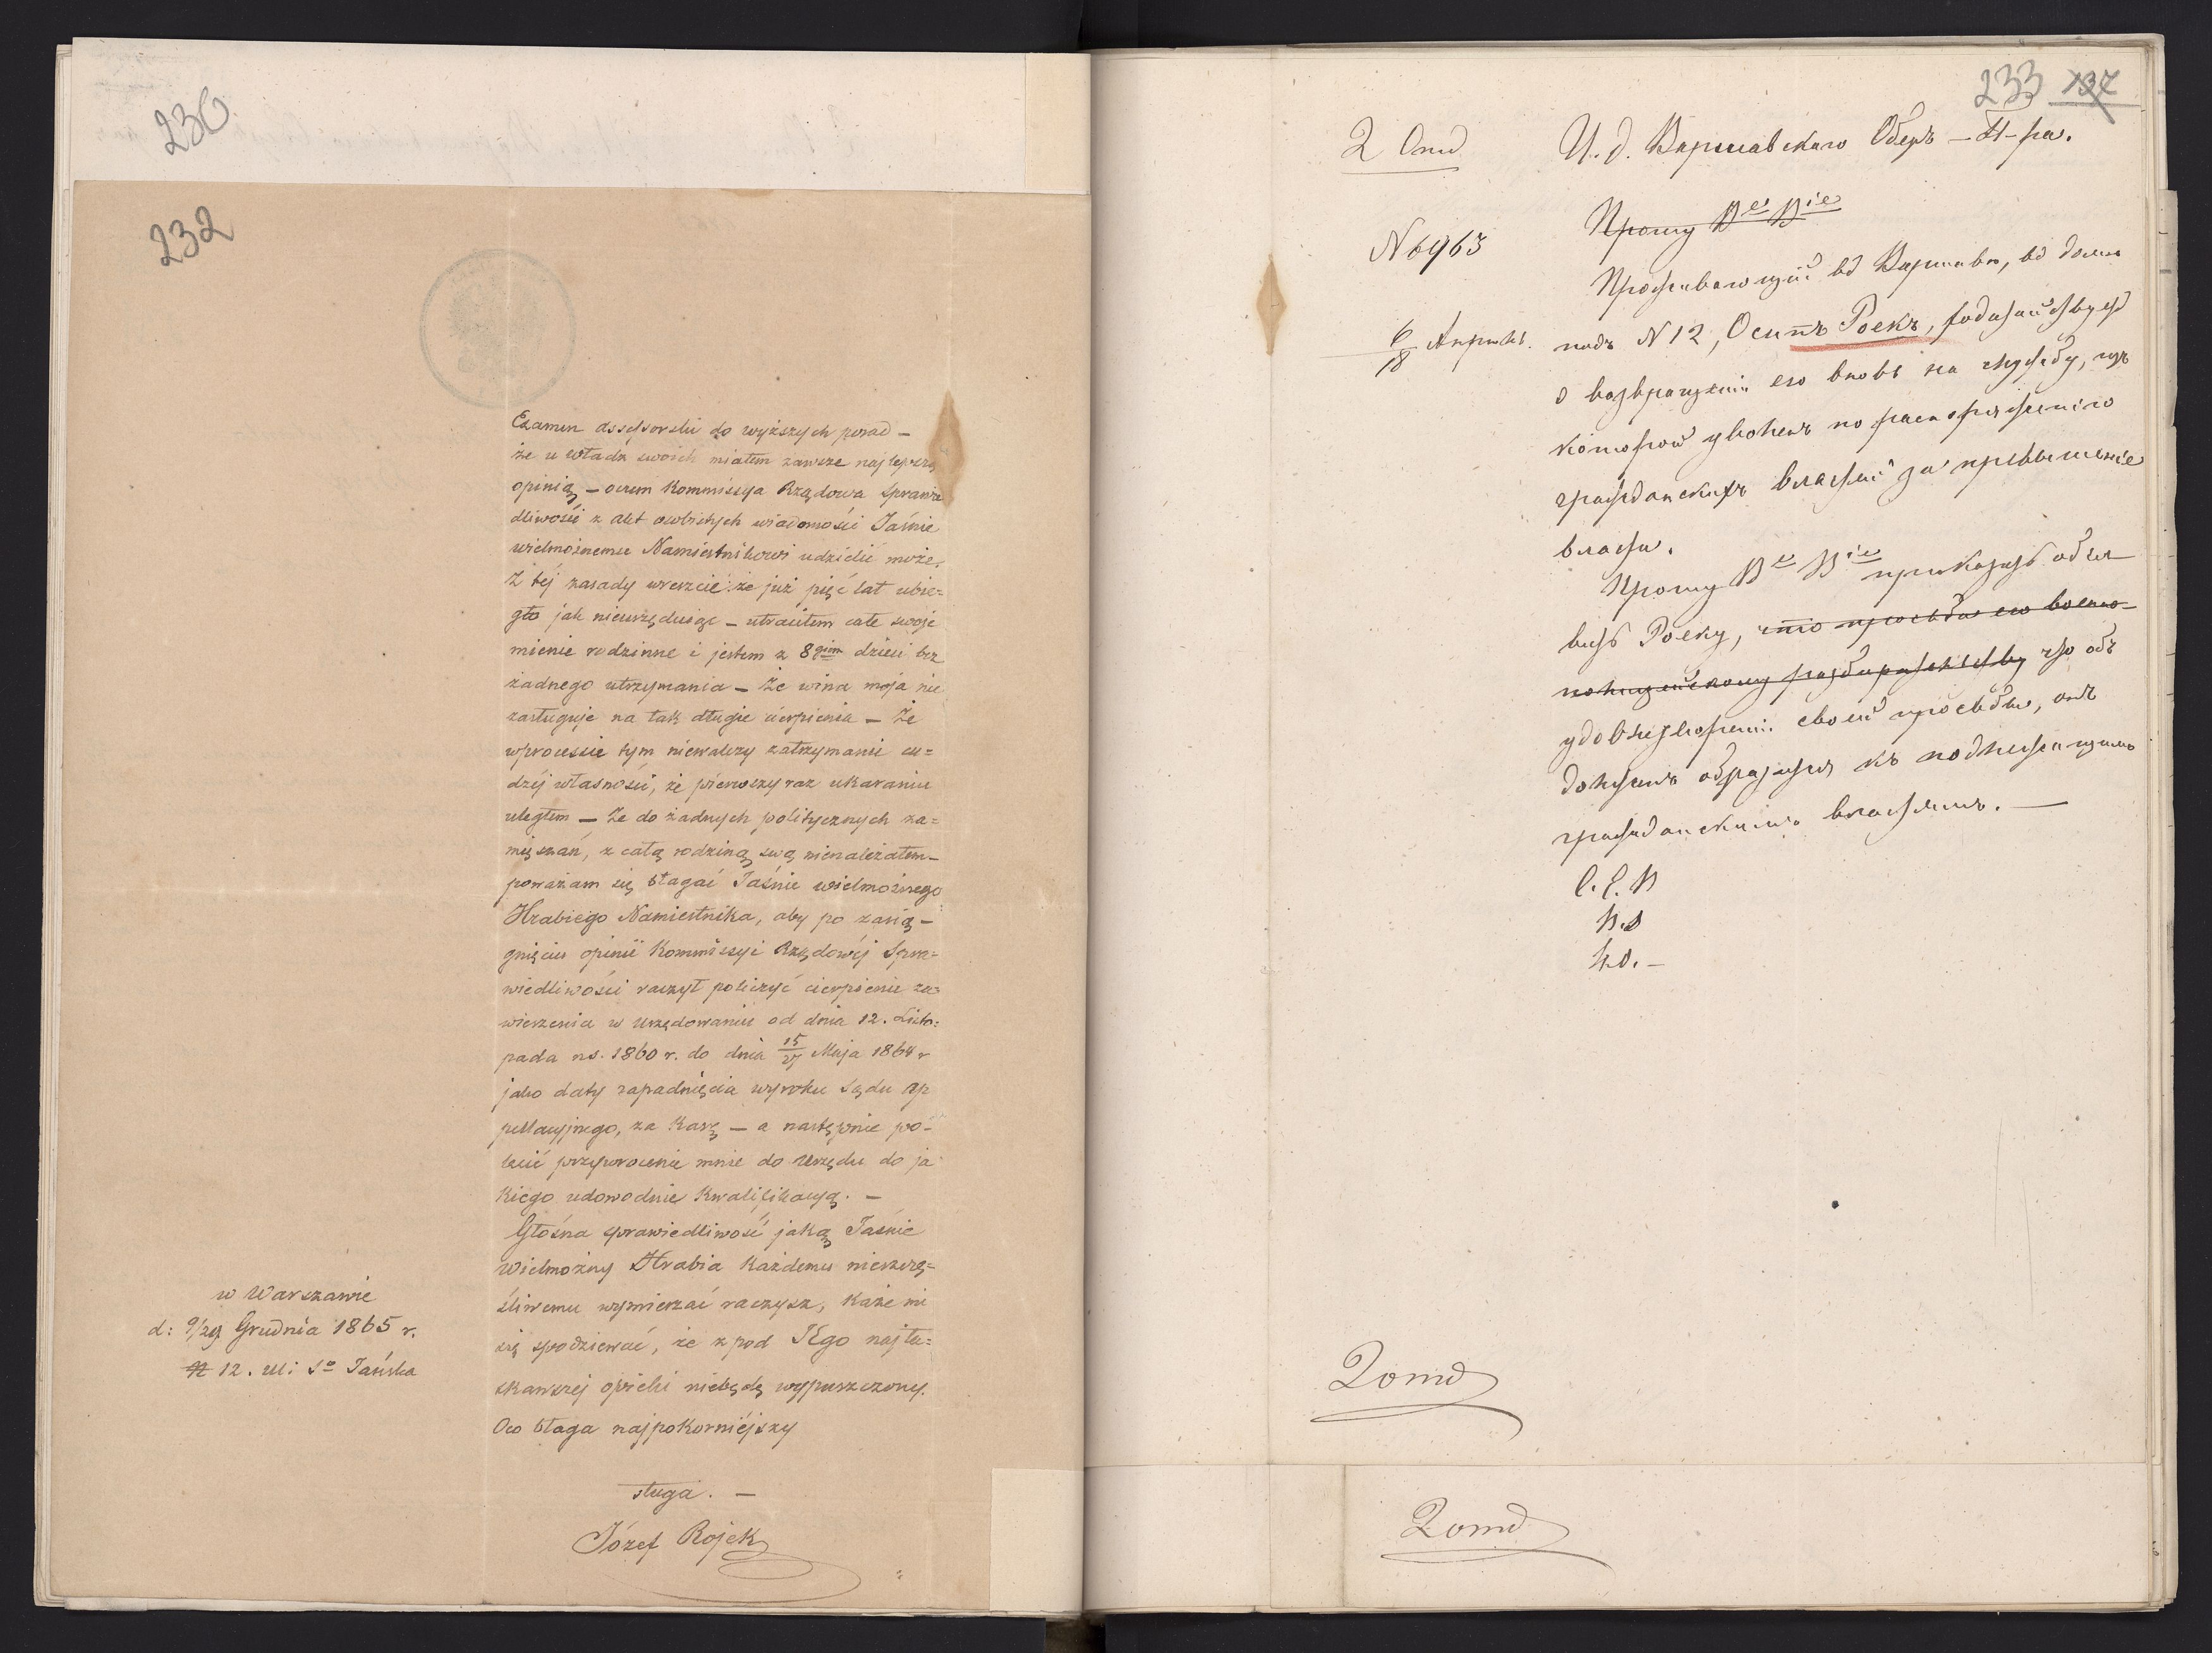 230
232
Examen assessorski do wyższych posad —
że u Władz swoich miałem zawsze najlepszą
opinią, — oczem Kommissya Rządowa Sprawie
dliwości z akt osobistych wiadomości Jaśnie
wielmożnemu Namiestnikowi udzielić może.
Z téj zasady wreszcie: że już pięć lat ubie=
gło jak nieurzęduję — utraciłem całe swoje
mienie rodzinne i jestem z 8giem dzieci bez
żadnego utrzymania — Że wina moja nie
zasługuje na tak długie cierpienia — Że
wprocessie tym niewalczy zatrzymanie cu=
dzéj własności, że pierwszy raz ukaraniu
uległem — Że do żadnych politycznych za=
mięszań, z całą rodziną swą nienależałem —
poważam się błagać Jaśnie wielmożnego
Hrabiego Namiestnika, aby po zasią —
gnięciu opinii Kommissyi Rządowéj Spra=
wiedliwości raczył policzyć cierpienie za=
wieszenia w Urzędowaniu od dnia 12. Listo=
pada ns. 1860 r. do dnia 15/27 Maja 1864 r
jako daty zapadnięcia wyroku Sądu Ap
pellacyjnego, za Karę — a następnie po-
lecić przywrocenie mnie do Urzędu do ja
kiego udowodnie Kwalifikacyą. —
Głośna sprawiedliwość jaką Jaśnie
Wielmożny Hrabia Każdemu nieszczę=
śliwemu wymierzać raczysz, Każe mi
się spodziewać, że z pod JEgo najła=
skawszej opieki niebędę wypuszczony.
Oco błaga najpokorniéjszy
sługa. —
Józef Rojek
w Warszawie
d: 9/29 Grudnia 1865 r.
N 12. uli: So Jańska
233 137
2 Отд
И. д. Варшавскаго Оберъ — П-ра.
N 6963
6/18 Апрѣля.
Прошу Ве Віе
Проживающій въ Варшавѣ, въ домѣ
подъ N 12, Осипъ Роекъ, ходатайствуетъ
о возвращеніи его вновь на службу, изъ
которой уволенъ по распоряженію
гражданскихъ властей за превышеніе
власти.
Прошу Ве Віе приказать объя
вить Роеку, что просьба его
что объ
удовлетвореніи своей просьбы, онъ
долженъ обратиться къ подлежащимъ
гражданскимъ властямъ. —
2 отд
2 отд